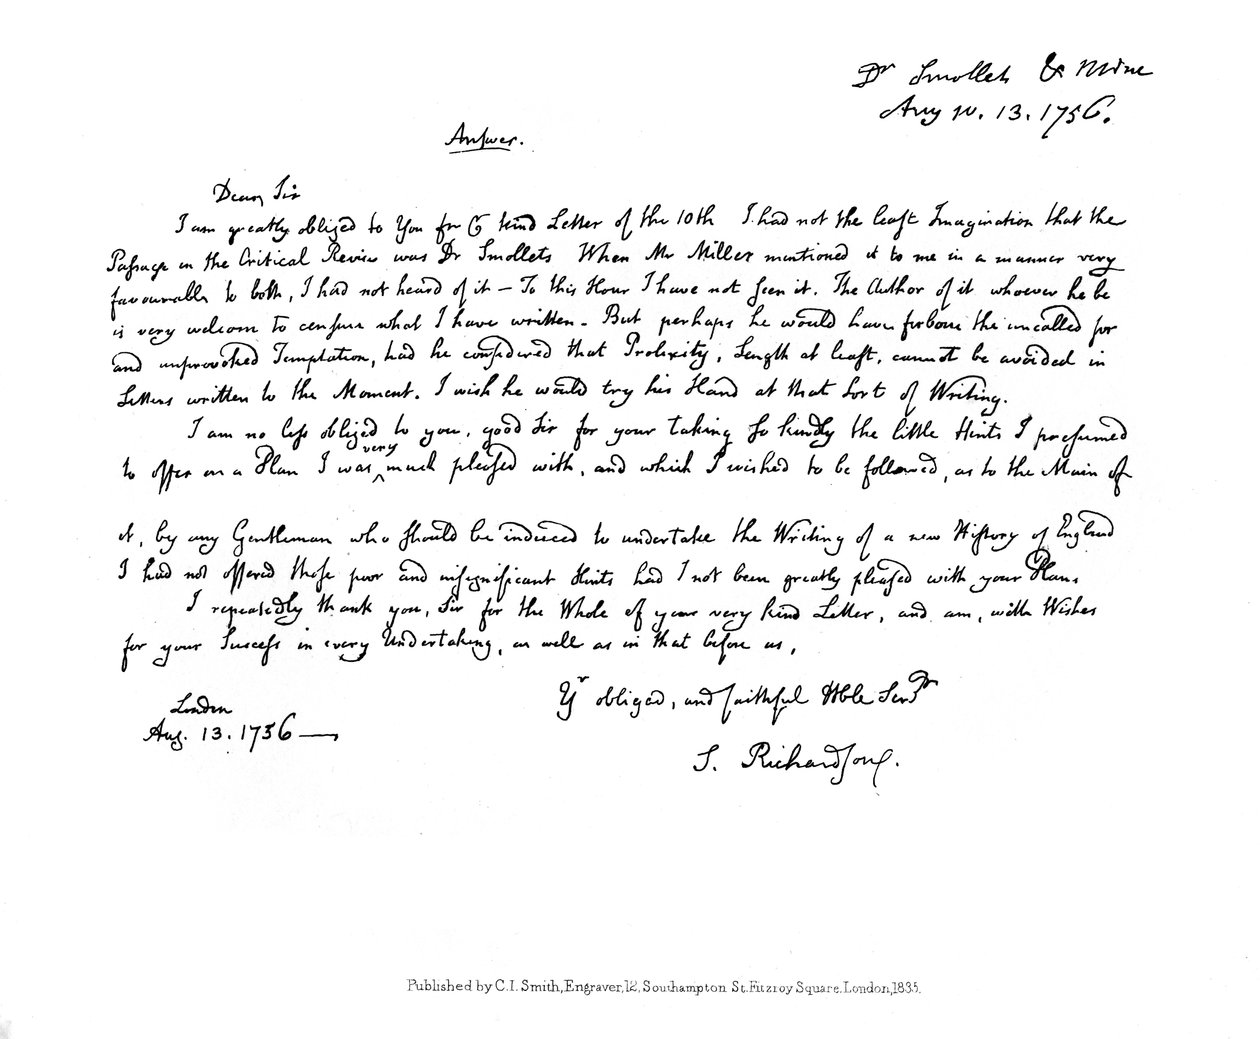 Dr Smollets & Mine
Aug 10. 13. 1756.
Answer.
Dear Sir
I am greatly obliged to You for kind Letter of the 10th I had not the least Imagination that the
Passage in the Critical Review was Dr Smollets When Mr Millar mentioned it to me in a manner very
favourable to both, I had not heard of it — To this Hour I have not seen it. The Author of it whoever he be
is very welcom to censure what I have written. But perhaps he would have forborn the uncalled for
and unprovoked Temptation, had he considered that Prolixity, Length at least, cannot be avoided in
Letters written to the Moment. I wish he would try his Hand at that Sort of Writing.
I am no less obliged to you, good Sir for your taking so kindly the little Hints I presumed
to offer on a Plan I was very much pleased with, and which I wished to be followed, as to the Main of
it, by any Gentleman who should be induced to undertake the Writing of a new History of England
I had not offered those poor and insignificant Hints had I not been greatly pleased with your Plan.
I repeatedly thank you, Sir for the Whole of your very kind Letter, and am, with Wishes
for your Success in every Undertaking, as well as in that before us,
Yr obliged, and faithful Hble Servt
London
Aug. 13. 1756 —
S. Richardson.
Published by C.I. Smith, Engraver, 12, Southampton St. Fitzroy Square. London, 1835.